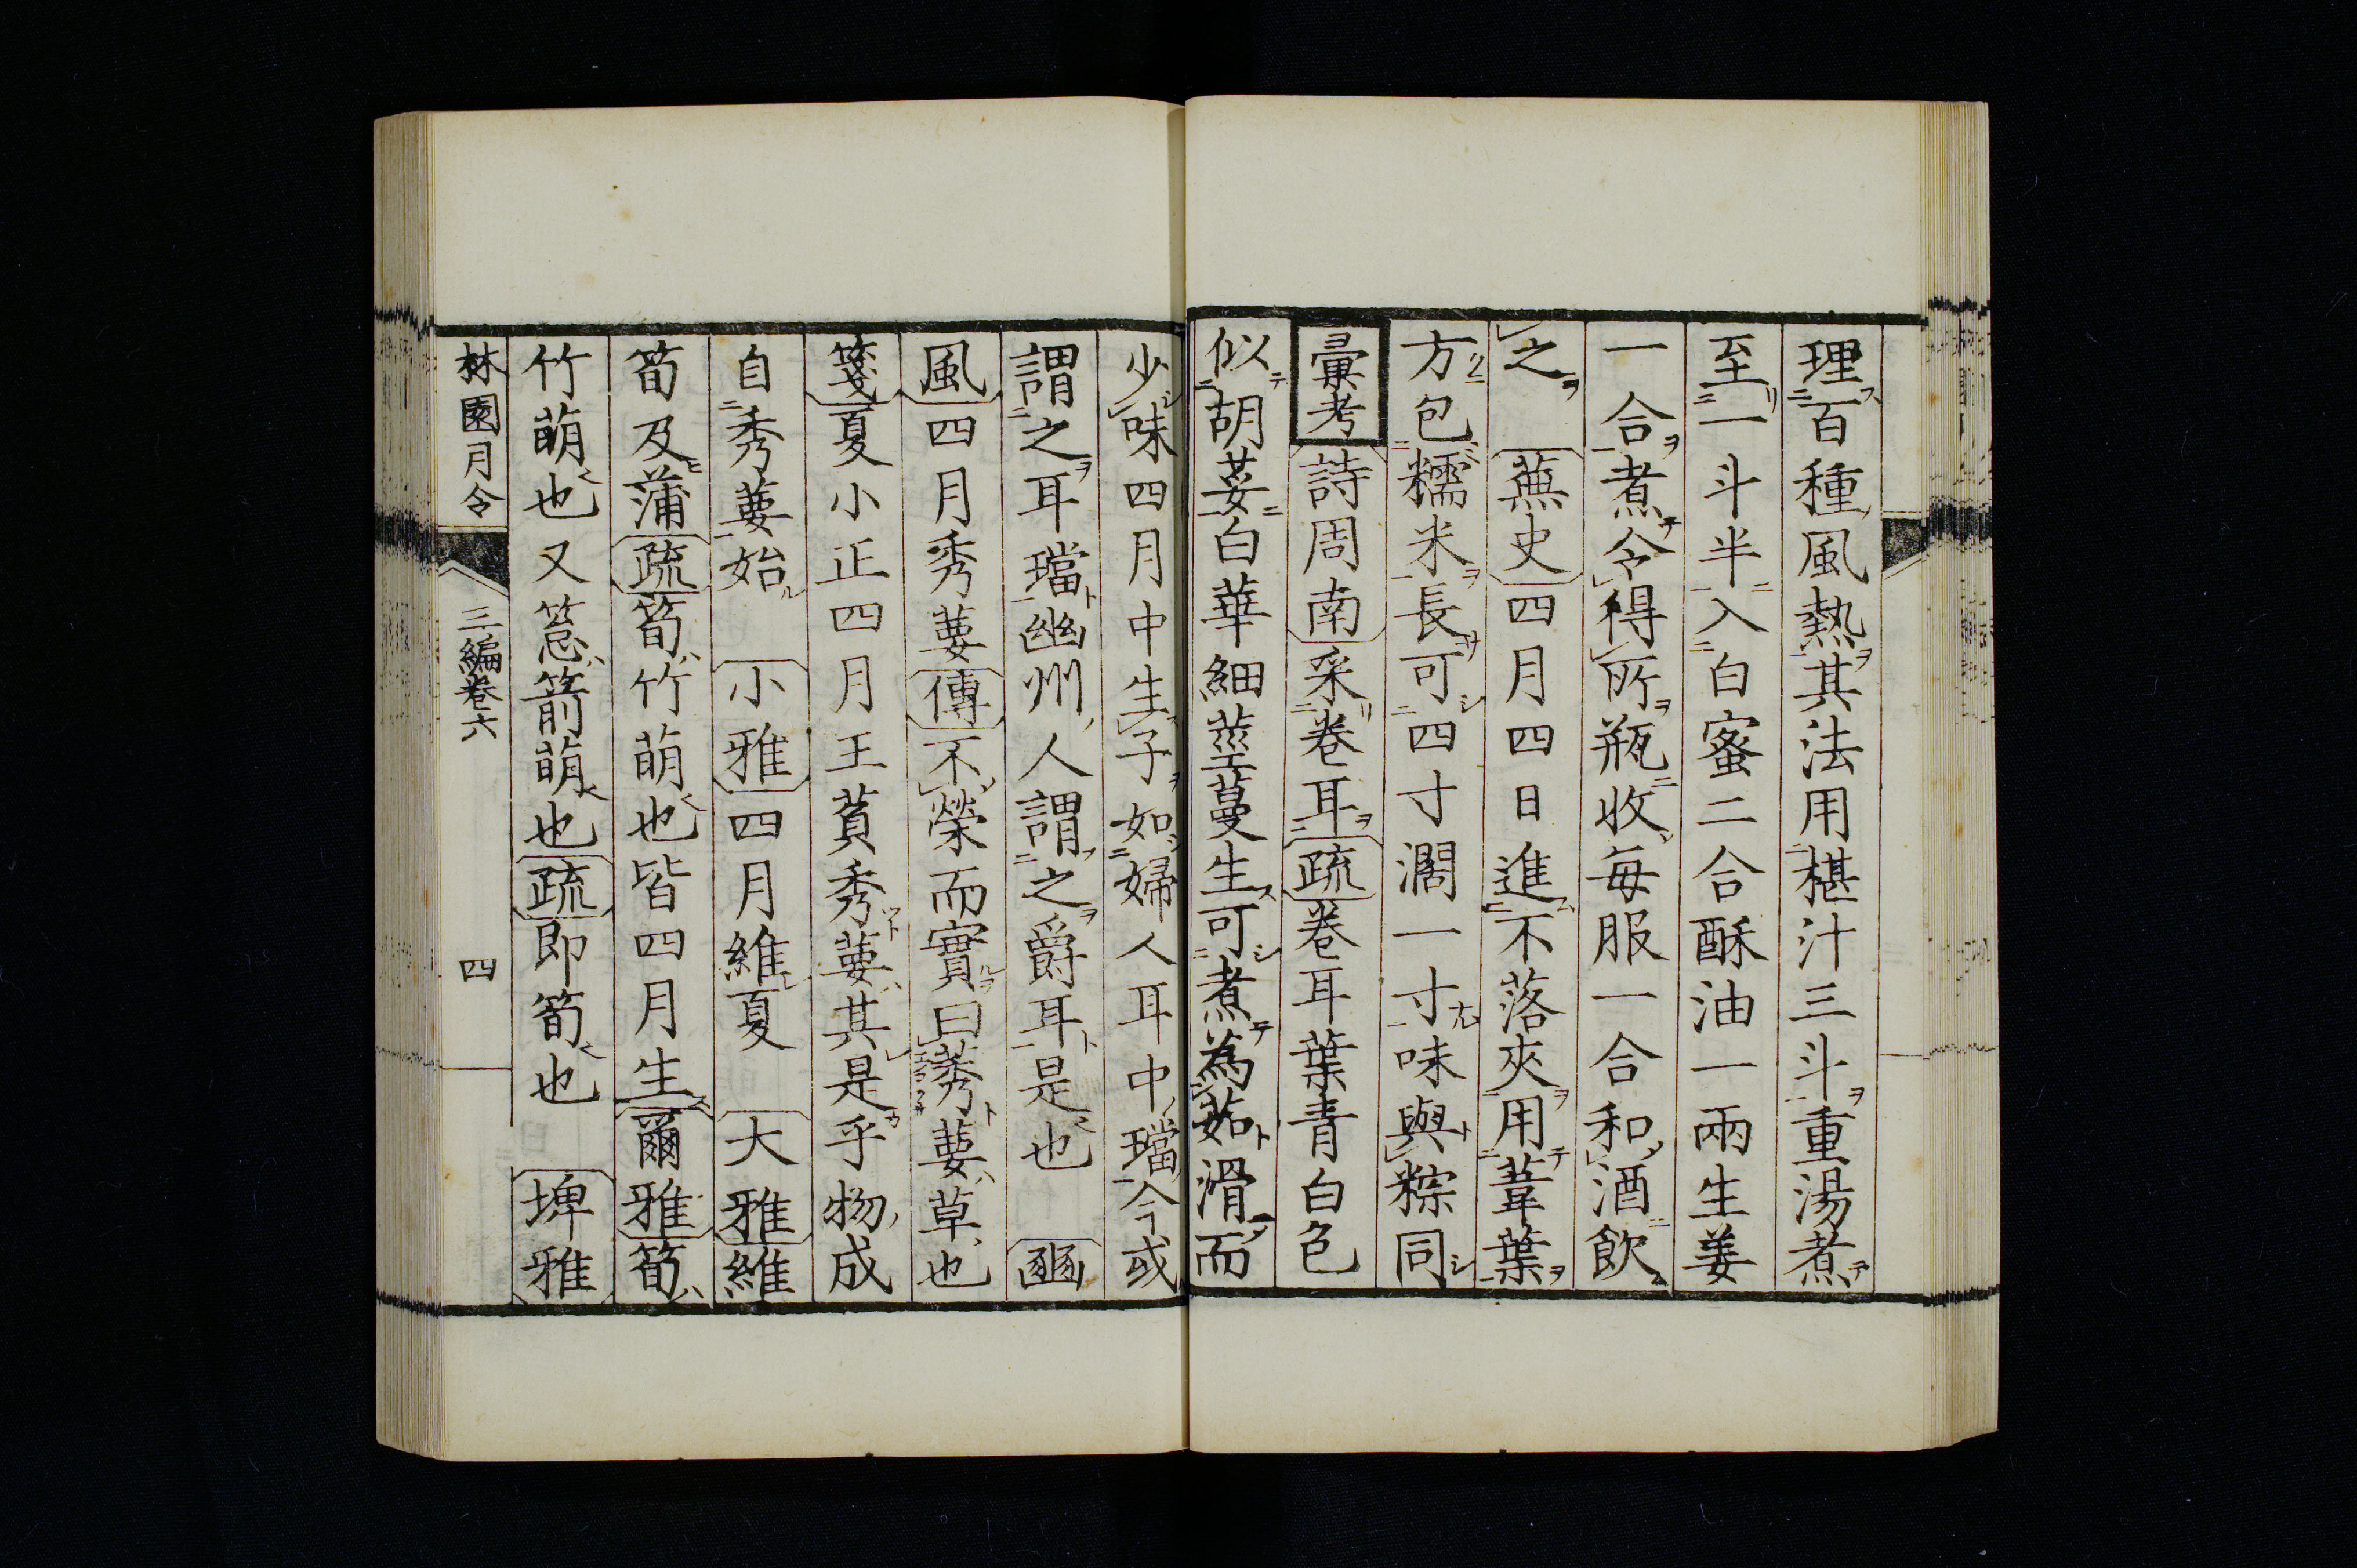 理百種風熱其法用椹汁三斗重湯煮
至一斗半入白蜜二合酥油一兩生姜
一合煮令得所瓶收每服一合和酒飲
之　蕉史四月四日進不落夾用葦葉
方包糯米長可四寸濶一寸味與粽同
彙考詩周南采卷耳疏卷耳葉青白色
似胡荽白華細莖蔓生可煮為茹滑而
少味四月中生子如婦人耳中璫今或
謂之耳璫幽州人謂之爵耳是也　豳
風四月秀葽傳不榮而實曰莠葽草也
箋夏小正四月王萯秀葽其是乎物成
自秀葽始　小雅四月維夏　大雅維
筍及蒲疏筍竹萌也皆四月生爾雅筍
竹萌也又箈箭萌也疏即筍也　埤雅
林園月令　三編卷六　四